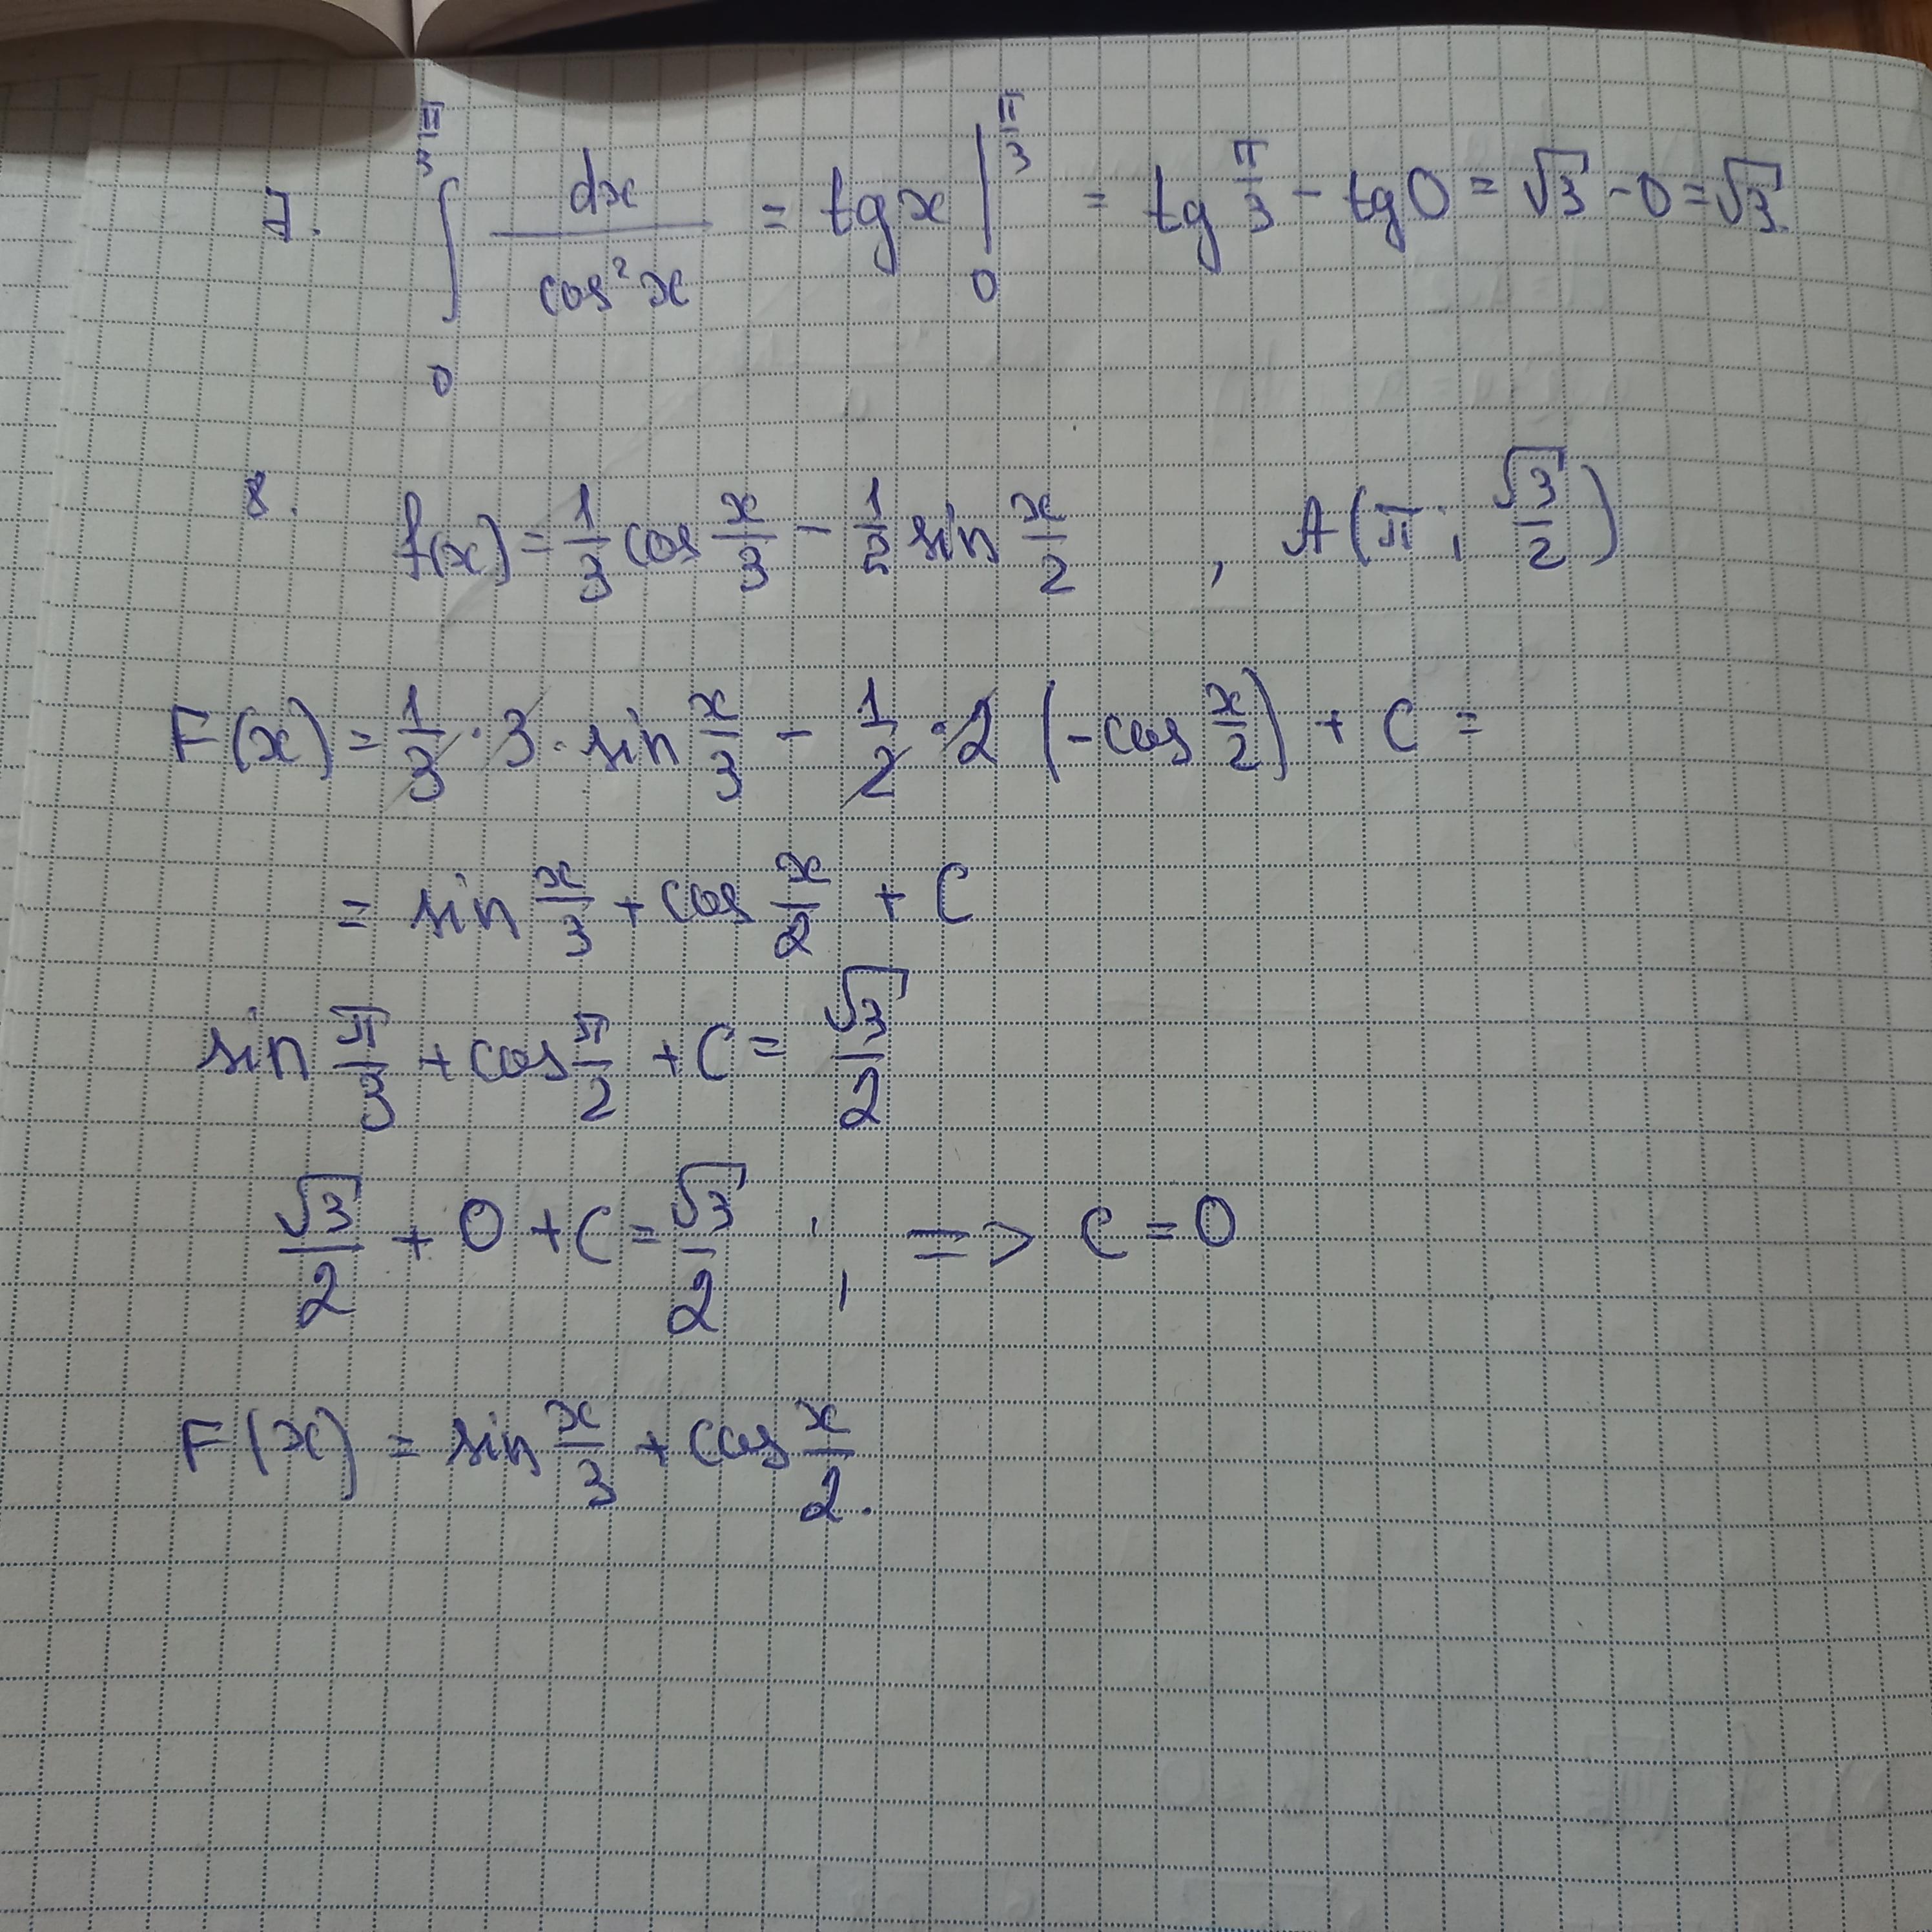 7. ∫₀^(π/3) dx/cos²x = tg x |₀^(π/3) = tg π/3 - tg 0 = √3 - 0 = √3.
8. f(x) = 1/3 cos x/3 - 1/2 sin x/2 , A(π; √3/2)
F(x) = 1/3 · 3 · sin x/3 - 1/2 · 2 (-cos x/2) + C =
= sin x/3 + cos x/2 + C
sin π/3 + cos π/2 + C = √3/2
√3/2 + 0 + C = √3/2 ; => C = 0
F(x) = sin x/3 + cos x/2.